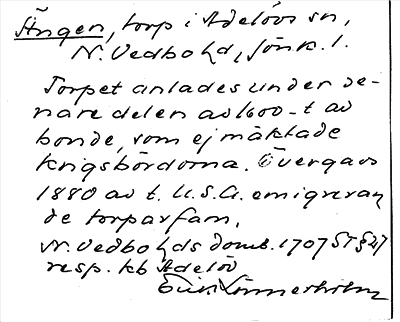 Ängen, torp i Adelövs sn,
N. Vedbo hd, Jönk. l.
Torpet anlades under se-
nare delen av 1600-t av
bonde, som ej mäktade
krigsbördorna. Övergavs
1880 av t. U.S.A. emigreran
de torparfam,
N. Vedbo hds domb. 1707 ST § 27
resp. kb Adelöv
Erik Lönnerholm